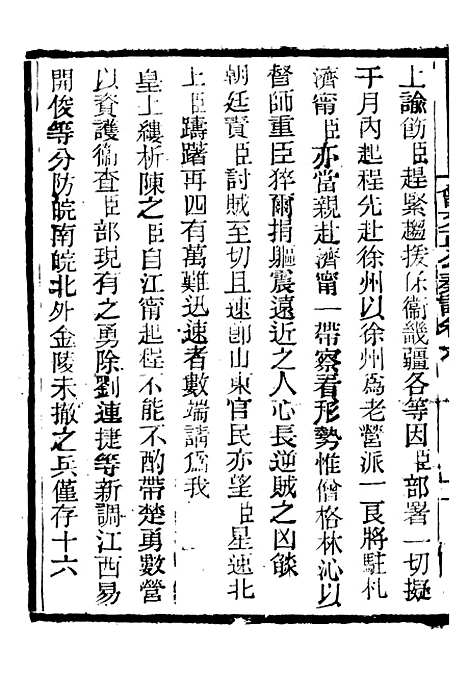 上諭飭臣趕緊趨援保衞畿疆各等因臣部署一切擬
于月內起程先赴徐州以徐州為老營派一良將駐札
濟甯臣亦當親赴濟甯一帶察看形勢惟僧格林沁以
督師重臣猝爾捐軀震遠近之人心長逆賊之凶燄
朝廷責臣討賊至切且速卽山東官民亦望臣星速北
上臣躊躇再四有萬難迅速者數端請為我
皇上縷析陳之臣自江甯起程不能不酌帶楚勇數營
以資護衞查臣部現有之勇除劉連捷等新調江西易
開俊等分防皖南皖北外金陵未撤之兵僅存十六